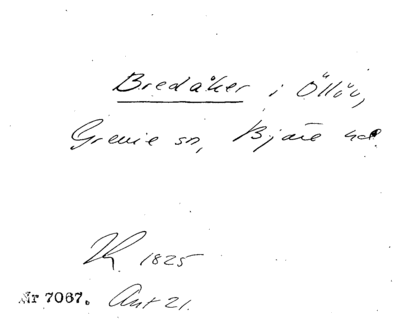 Bredåker i Öllöv,
Grevie sn, Bjäre hd.
1825
Nr 7067. Ant 21.